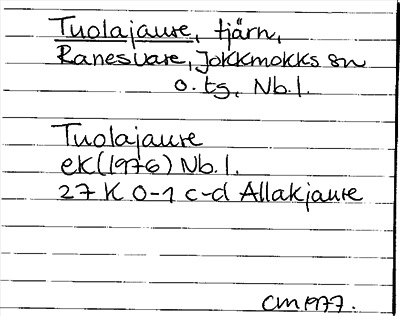 Tuolajaure, tjärn,
Ranesvare, Jokkmokks sn
o. tg, Nb. l.
Tuolajaure
ek (1976) Nb. l.
27 K 0-1 c-d Allakjaure
CM 1977.